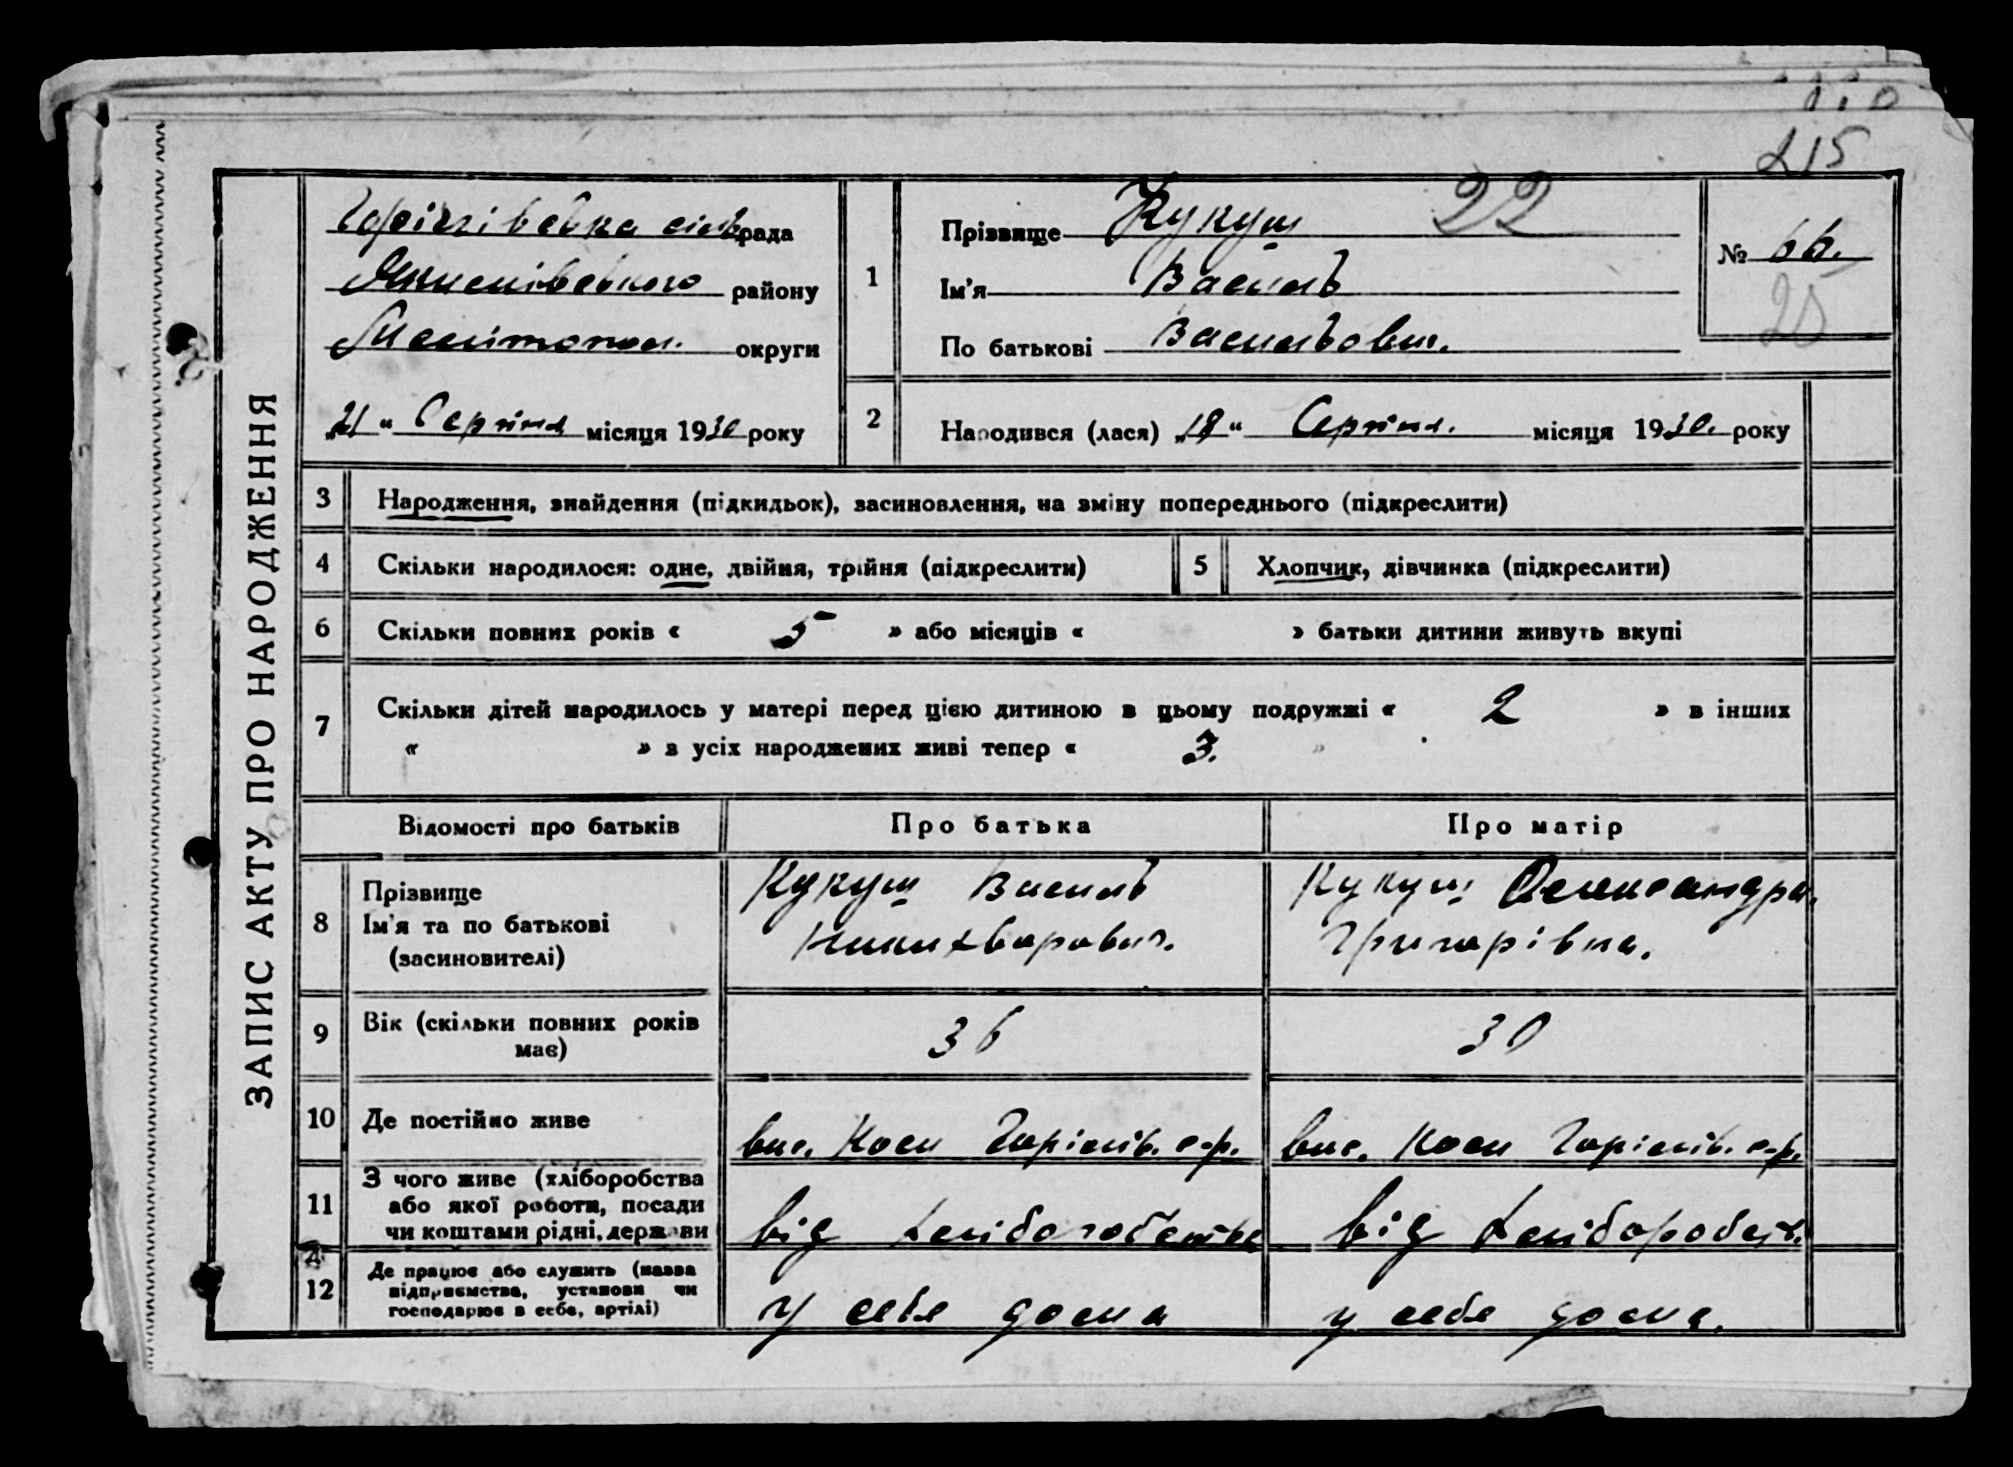 215
ЗАПИС АКТУ ПРО НАРОДЖЕННЯ
Горілівська сільрада
Якимівського району
Мелітопол. округи
„21“ Серпня місяця 1930 року
1
Прізвище Кукуш 22
Ім'я Василь
По батькові Васильович.
№ 66.
25
2
Народився (лася) „18“ Серпня. місяця 1930. року
3 Народження, знайдення (підкидьок), засиновлення, на зміну попереднього (підкреслити)
4 Скільки народилося: одне, двійня, трійня (підкреслити) 5 Хлопчик, дівчинка (підкреслити)
6 Скільки повних років « 5 » або місяців « » батьки дитини живуть вкупі
7 Скільки дітей народилось у матері перед цією дитиною в цьому подружжі « 2 » в інших
« » з усіх народжених живі тепер « 3. »
Відомості про батьків Про батька Про матір
8 Прізвище Ім'я та по батькові (засиновителі)
Кукуш Василь
Никихворович.
Кукуш Олександра.
Григорівна.
9 Вік (скільки повних років має) 36 30
10 Де постійно живе вис. Коси Горілів. с-р. вис. Коси Горілів. с-р.
11 З чого живе (хліборобства
або якої роботи, посади
чи коштами рідні, держави
від хліборобства від хлібороbств.
12 Де працює або служить (назва
підприємства, установи чи
господарює в себе, артілі)
у себя дома у себя дома.